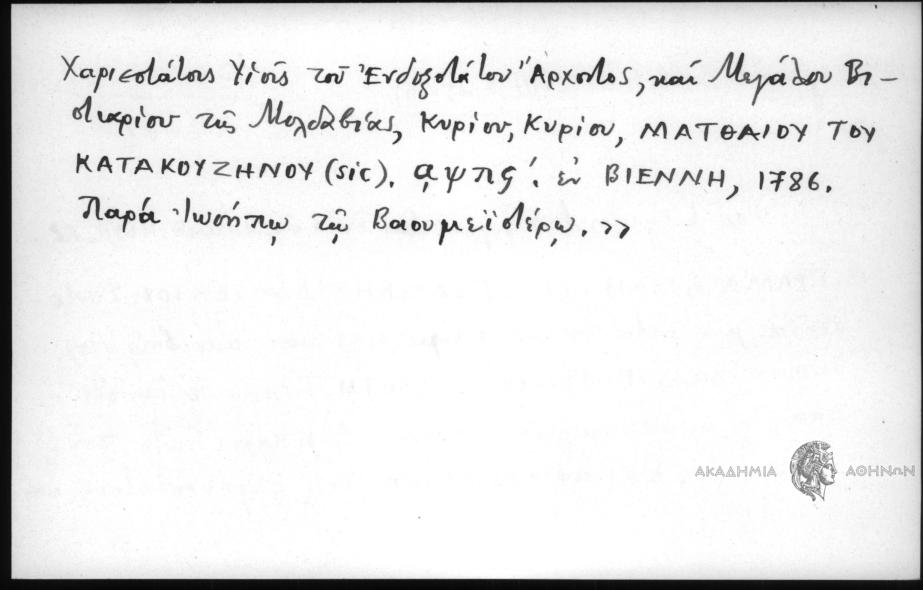 Χαριεστάτοις Υἱοῖς τοῦ Ἐνδοξοτάτου Ἄρχοντος, καὶ Μεγάλου Βι-
στιαρίου τῆς Μολδαβίας, Κυρίου, Κυρίου, ΜΑΤΘΑΙΟΥ ΤΟΥ
ΚΑΤΑΚΟΥΖΗΝΟΥ (sic). ͵αψπϛʹ. ἐν ΒΙΕΝΝΗ, 1786.
Παρὰ Ἰωσήπῳ τῷ Βαουμεϊστέρῳ.»
ΑΚΑΔΗΜΙΑ ΑΘΗΝΩΝ